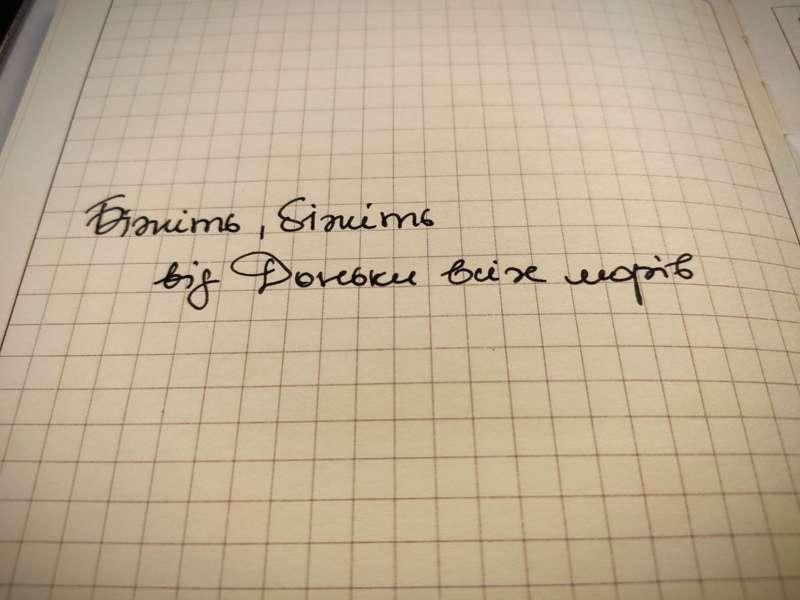 Біжіть, біжіть
від Доньки всіх морів